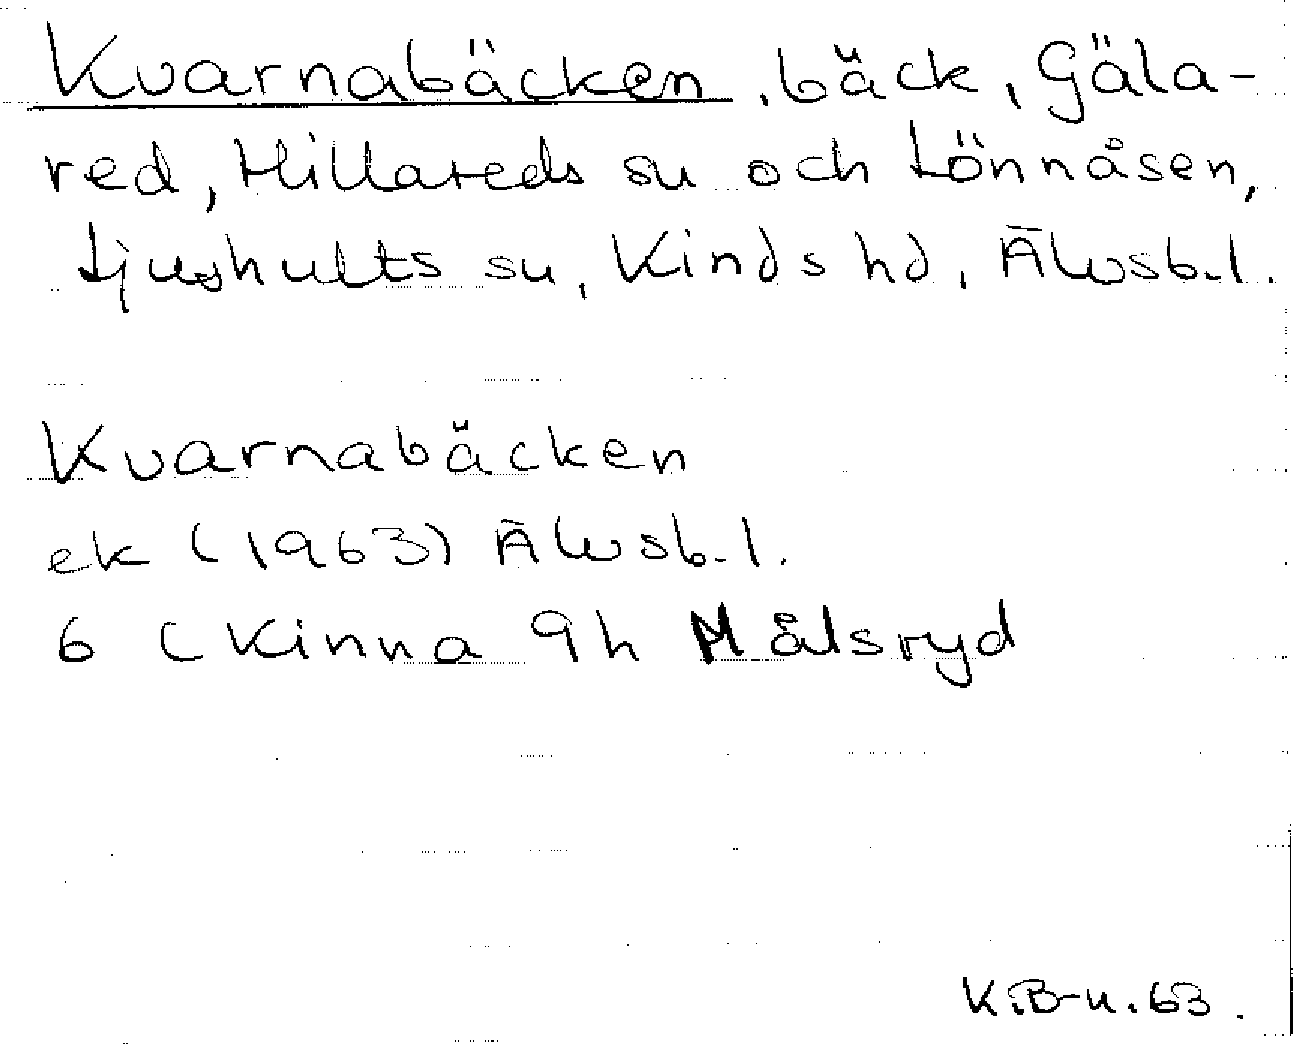 Kvarnabäcken, bäck, Gäla-
red, Hillareds sn och Lönnåsen,
Ljushults sn, Kinds hd, Älvsb.l.
Kvarnabäcken
ek (1963) Älvsb.l.
6 C Kinna 9h Målsryd
K.B-n.63.